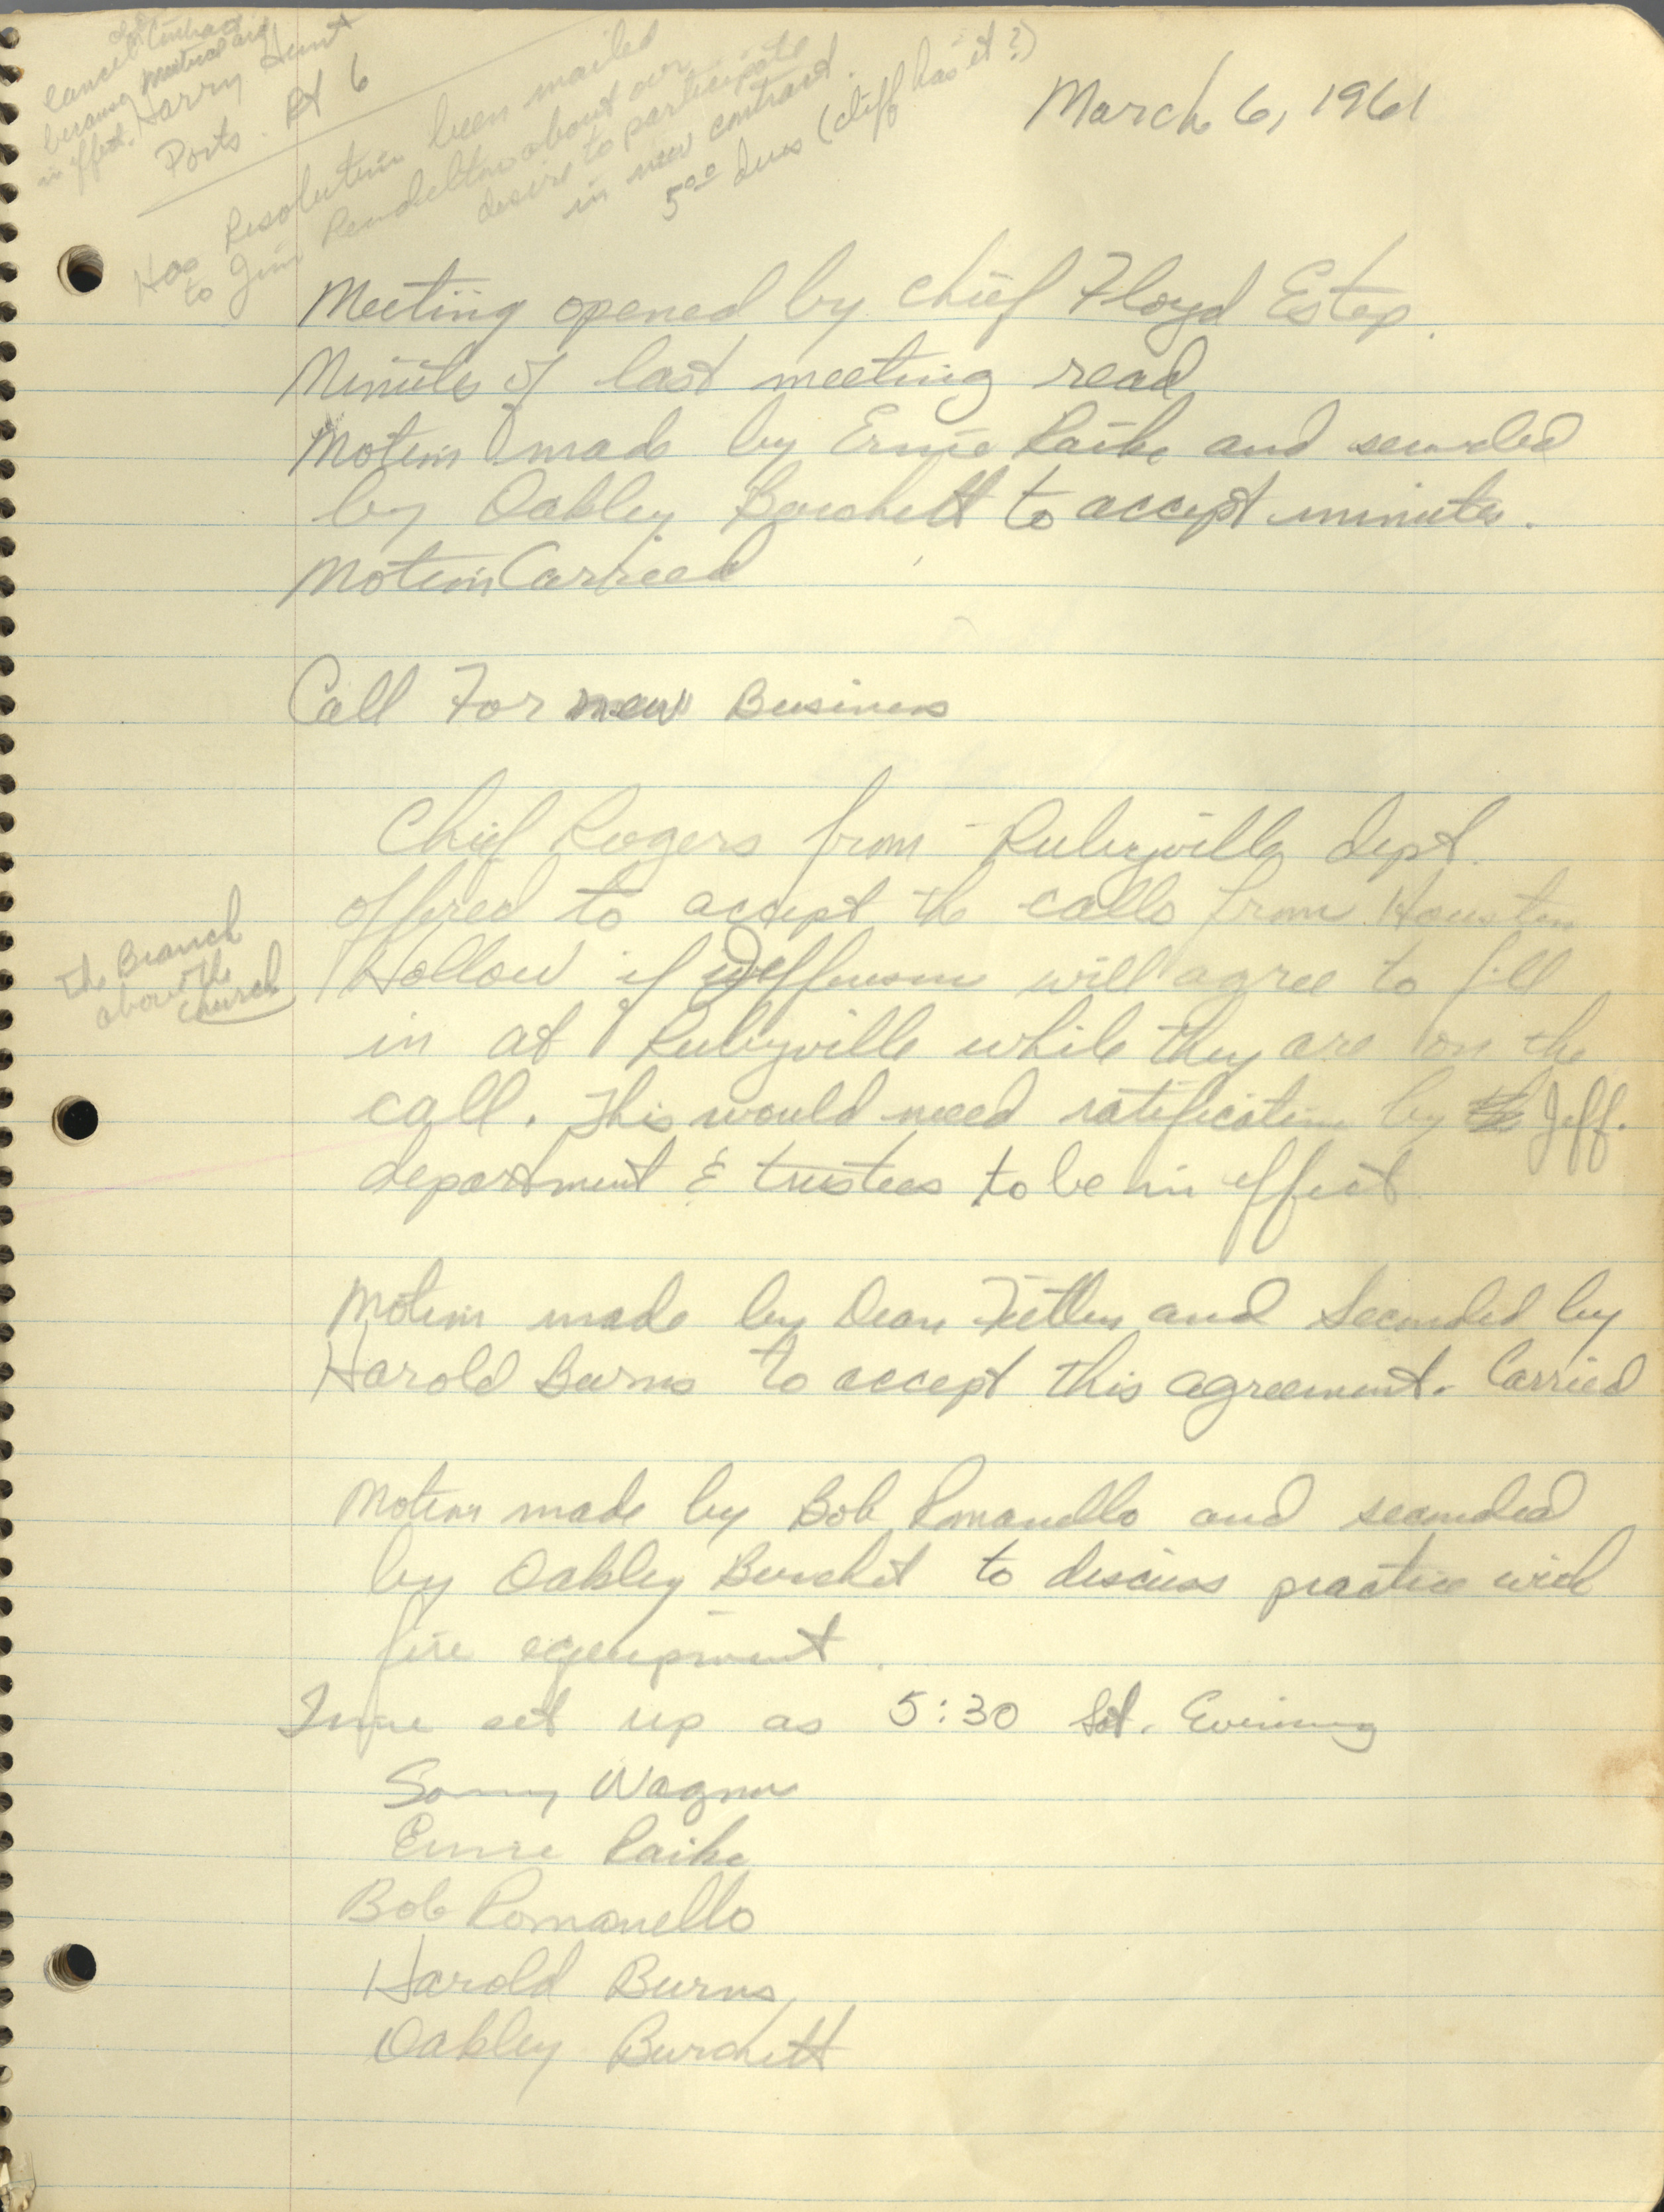 old Contract
Cancel
because Mutual aid
in effect. Harry Hunt
Ports. Rt 6
Has Resolution been mailed
to Jim Pendelton about our
desire to participate
in new contract.
5.00 dues (Cliff has it?)
March 6, 1961
Meeting opened by Chief Floyd Estep.
Minutes of last meeting read
Motion made by Ernie Raike and seconded
by Oakley Burchett to accept minutes.
Motion Carried
Call For new Business
Chief Rogers from Rubyville dept.
offered to accept the calls from Houston
Hollow if Jefferson will agree to fill
in at Rubyville while they are on the
call. This would need ratification by the Jeff.
department & trustees to be in effect
The Branch
above the
Church
Motion made by Dean and Seconded by
Harold Burns to accept this agreement. Carried
Motion made by Bob Romanello and seconded
by Oakley Burchet to discuss practice with
fire equipment.
Time set up as 5:30 Sat. Evening
Sonny Wagner
Ernie Raike
Bob Romanello
Harold Burns
Oakley Burchett